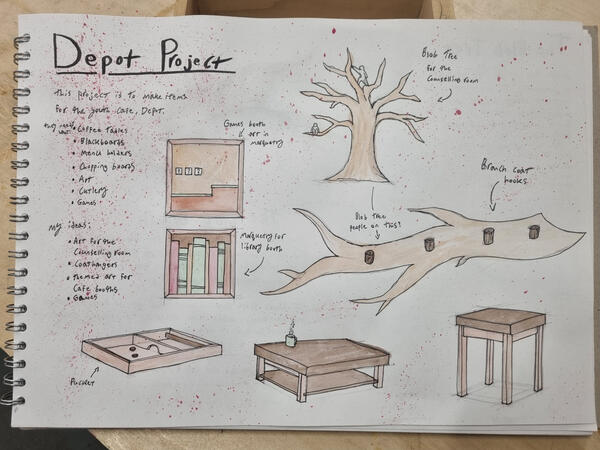 Depot Project
this project is to make items
for the youth cafe, Depot.
they really want:
• Coffee tables
• Blackboards
• Menu holders
• Chopping boards
• Art
• Cutlery
• Games
My ideas:
• Art for the
Counselling room
• Coathangers
• themed art for
Cafe booths
• Games
Games booth
art in
marquetry
Marquetry for
library booth
Blob Tree
for the
Counselling room
Blob tree
people on this?
Branch coat
hooks.
Pucket